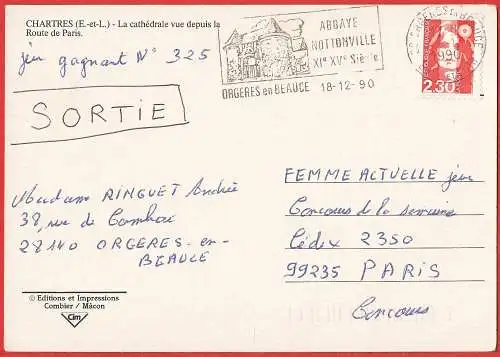 CHARTRES (E.-et-L.) - La cathédrale vue depuis la
Route de Paris.
jeu gagnant N° 325
SORTIE
ABBAYE
NOTTONVILLE
XIe XVe Siècle
ORGERES en BEAUCE 18-12-90
2,30
Madame RINGUET Andrée
38, rue de Cambrai
28140 ORGERES-en-
BEAUCE
FEMME ACTUELLE jeu
Concours de la semaine
Cédex 2350
99235 PARIS
Concours
© Editions et Impressions
Combier / Mâcon
Cim